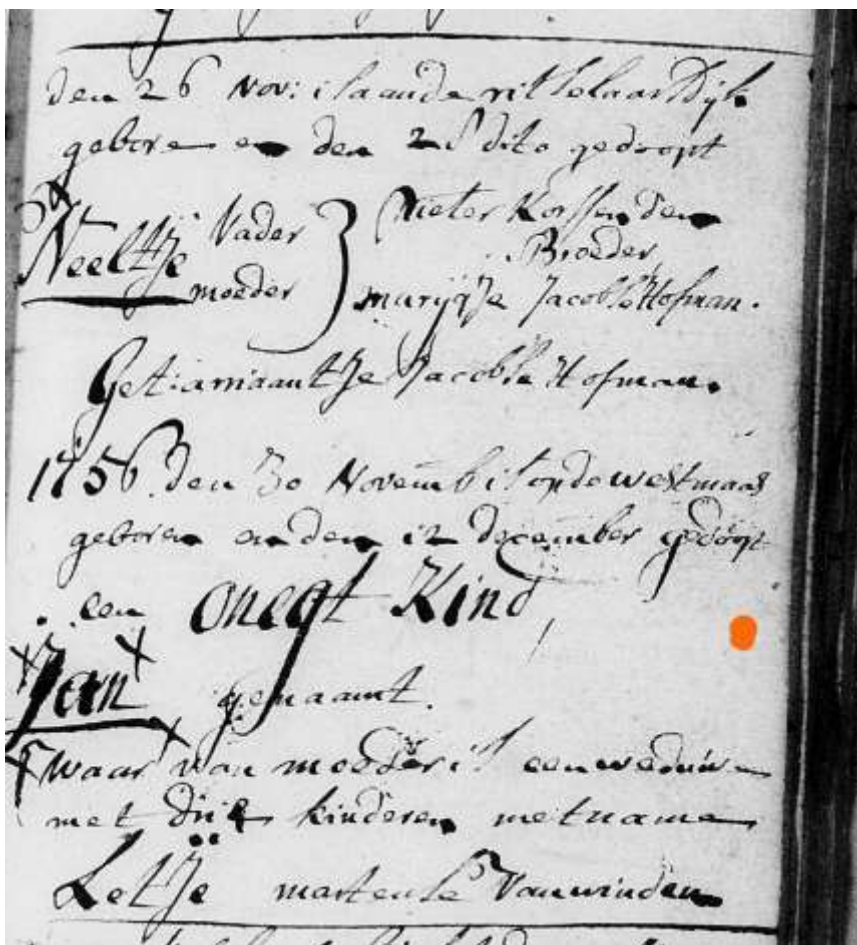 den 26 Nov: is aande ritselaarsdijk
gebore en den 28 dito gedoopt
Neeltje Vader Pieter Korssen den
Broeder
moeder marijtje Jacobse Hofman.
Get: ariaantje Jacobse Hofman.
1756. den 30 Novemb is op de westmaas
geboren en den 12 december gedoopt
een onegt Kind,
Jan genaamt.
waar van moeder is een weduwe
met drie kinderen met name
Letje martense Van winden